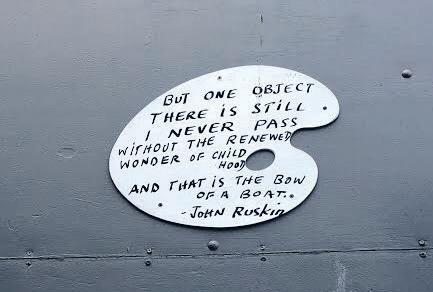 BUT ONE OBJECT
THERE IS STILL
I NEVER PASS
WITHOUT THE RENEWED
WONDER OF CHILD
HOOD
AND THAT IS THE BOW
OF A BOAT..
-JOHN RUSKIN